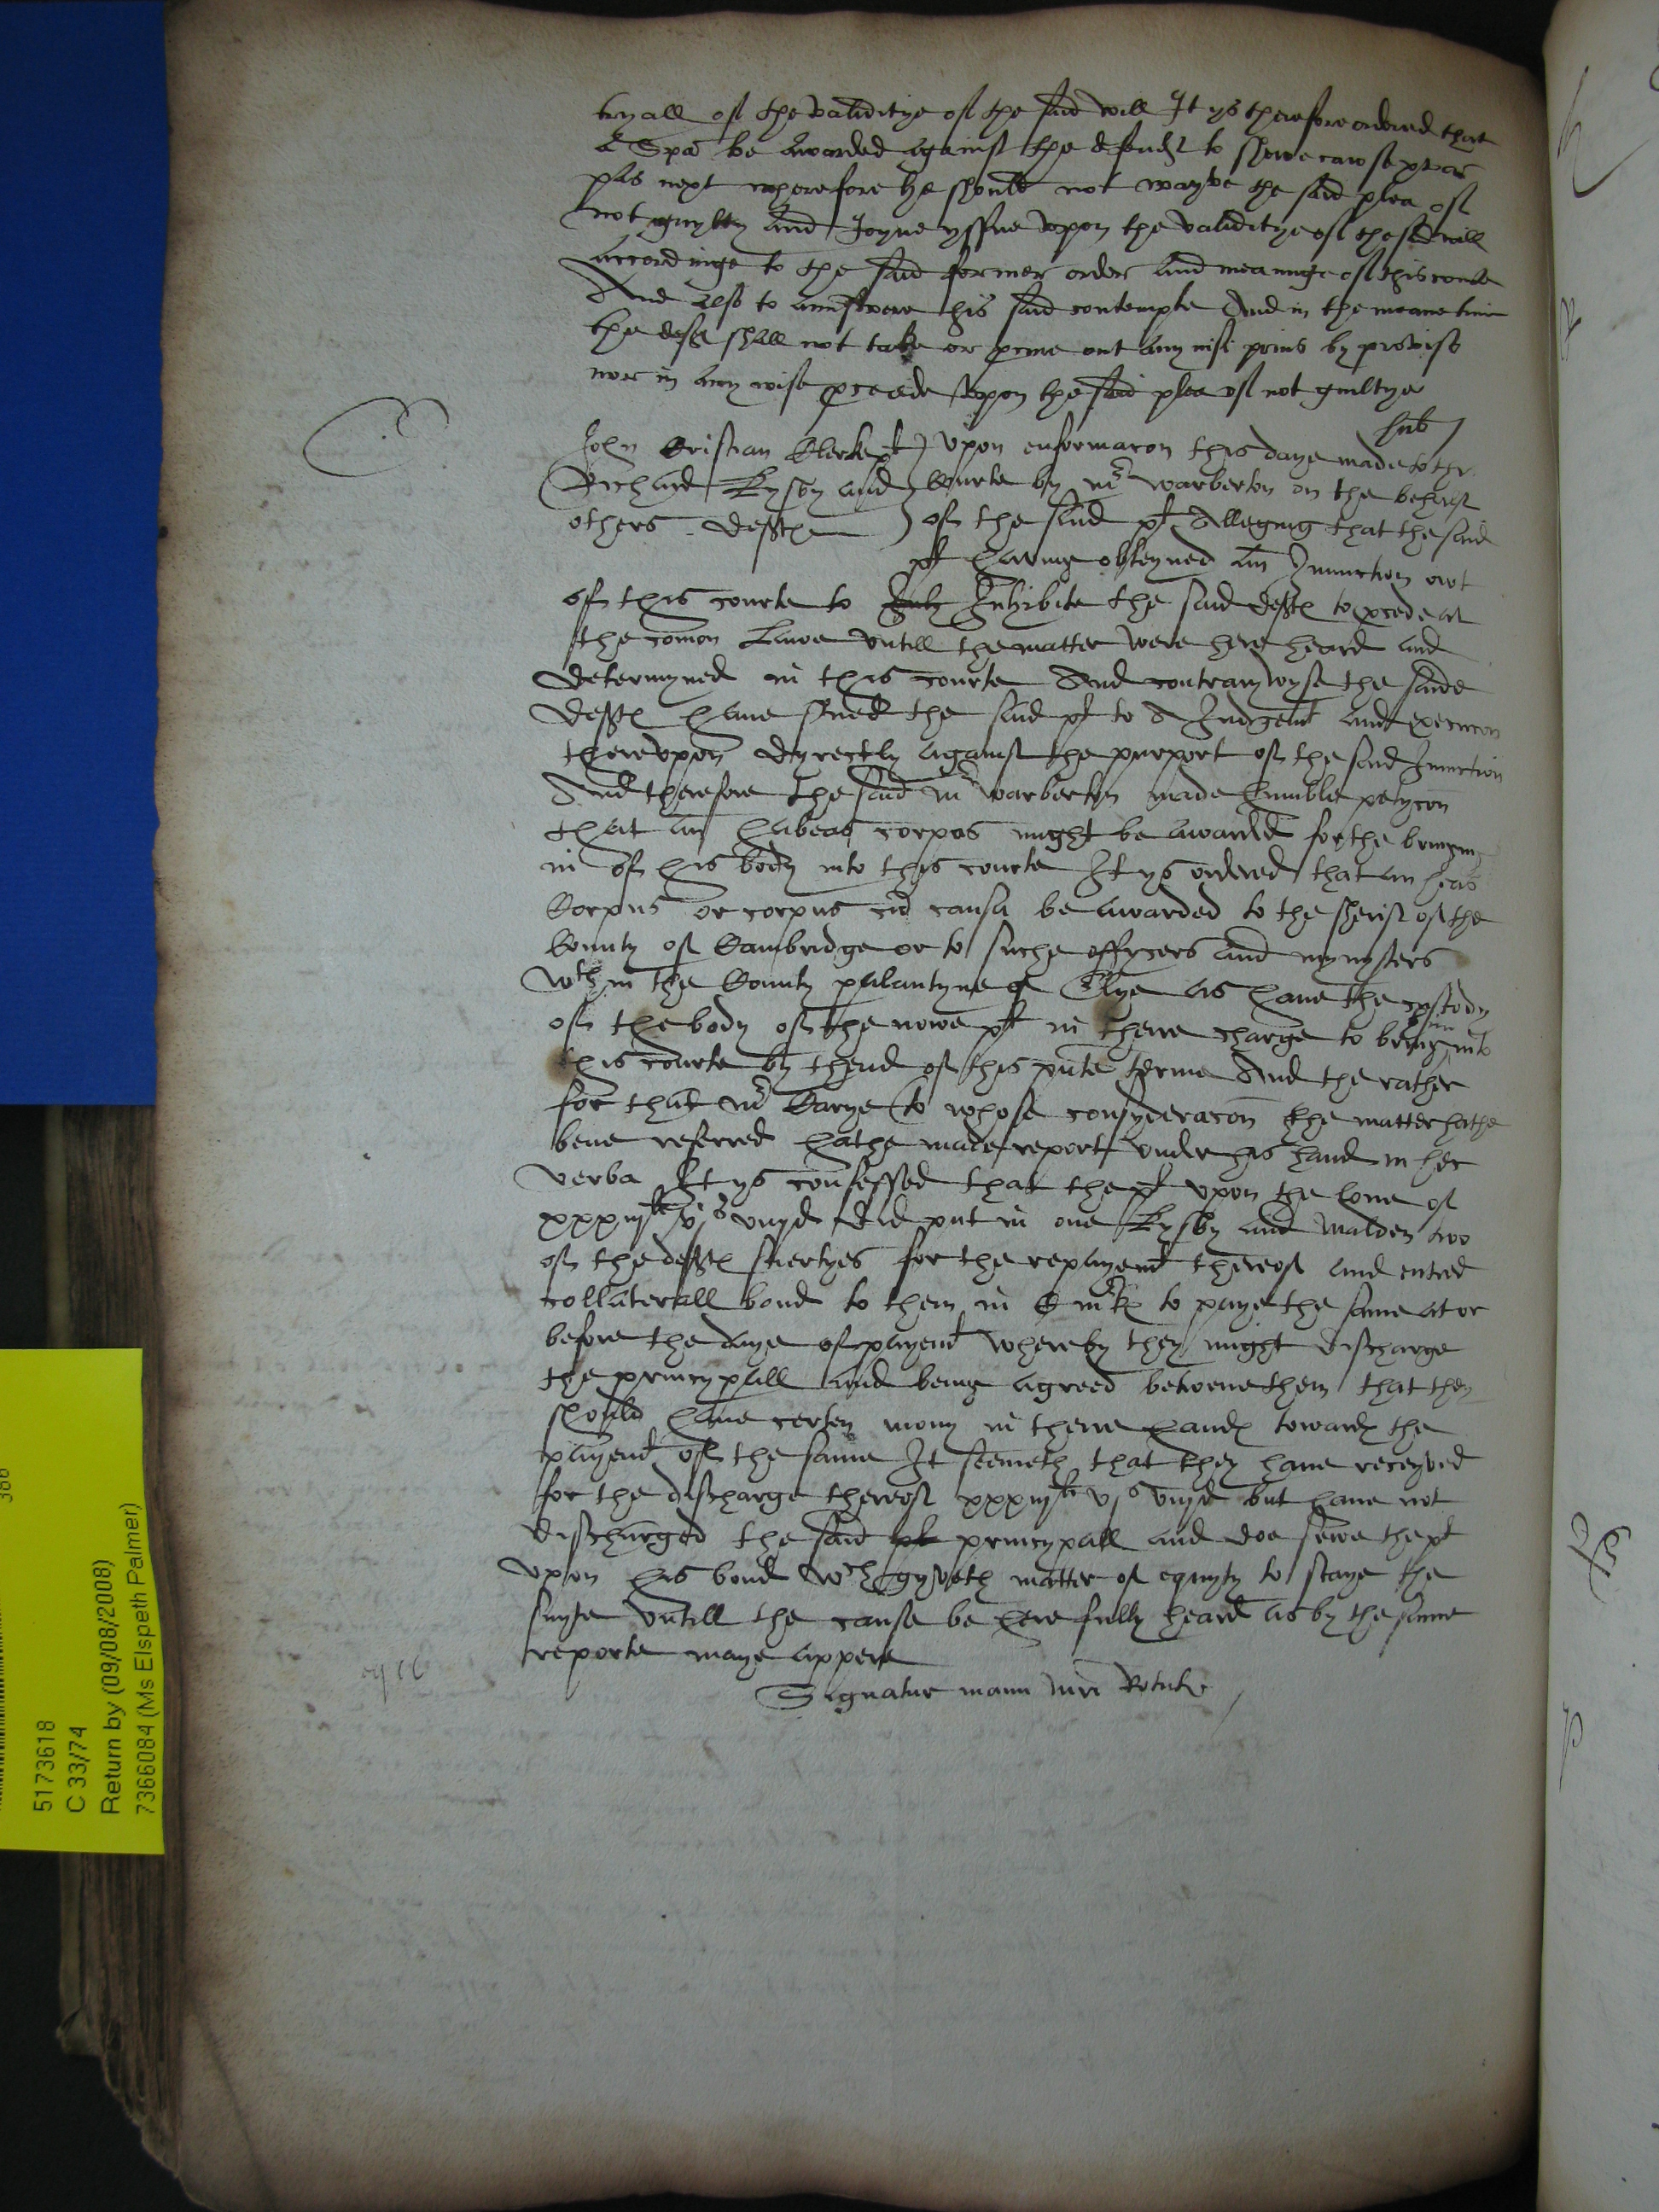 tryall of the validitye of the said will It ys therefore ordered that
a Spa be awarded against the defendt to shewe cawse
next wherefore he should not wayve the said plea of
not guylty and Joyne yssue upon the validitye of the sd will
accordinge to the said former order and meaninge of this courte
And also to aunswere his said contempte And in the meane time
the deft shall not take or prcure out any nisi prius by proviso
nor in any wise pceede upon the said plea of not guiltye
John Cristian Clerke plt
Richard Kysby and
others deftes
upon enformacon this daye made to the
Courte by mr warberton on the behalf
of the said plt Alleging that the said
plt having obteyned an Iniunction out
of this courte to Inhy Inhibite the said deftes to pcede at
the comon Lawe untill the matter were here heard and
determyned in this courte And contrarywyse the saide
deftes have sued the said plt to a Judgemt and execucon
thereupon dyrectly against the purport of the said Iniunction
And therefore the said mr warberton made humble petycon
that an habeas corpus might be awarded for the bringing
in of his body into this courte It ys ordered that an heas
Corpus or corpus cu causa be awarded to the sherif of the
County of Cambridge or to suche offycers and mynysters
wthin the County palantyne of Elye as have the custody
of the body of the nowe plt in there charge to bring him into
this courte by thend of this pnte terme And the rather
for that mr Carye to whose consyderacon the matter hathe
bene referred hathe made report under his hand in hec
verba It ys confessed that the plt upon the lone of
xxxiijli vjs viijd did put in one Kysby and Malden two
of the deftes suertyes for the repayemt thereof and entred
collaterall bond to them in C mrkes to paye the same at or
before the daye of payemt whereby they might discharge
the pryncypall and being agreed betwene them that they
should have certen mony in there handes towardes the
payemt of the same It seemeth that they have receyved
for the discharge thereof xxxiijli vjs viijd but have not
discharged the said plt pryncypall and doe sewe the plt
upon his bond wch gyveth matter of equyty to staye the
suyte untill the cause be here fully heard as by the same
reporte maye appere
Signatur manu mri Rotulor
5173618
C 33/74
Return by (09/08/2008)
7366084 (Ms Elspeth Palmer)